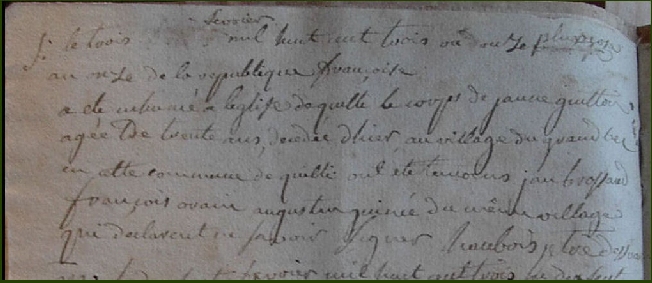 fevrier
le trois mil huit cent trois ou douze pluviose
an onze de la republique francoise
a ete inhumé a leglise de quilte le corps de janne guitton
agée De trente ans, decedée d'hier, au village du grand
en cette commune de quilli ont ete temoins jan brossaud
françois orain augustin guinée du même village
qui declarent ne savoir signer haubois ptre
fevrier mil huit cent trois ou dix sept